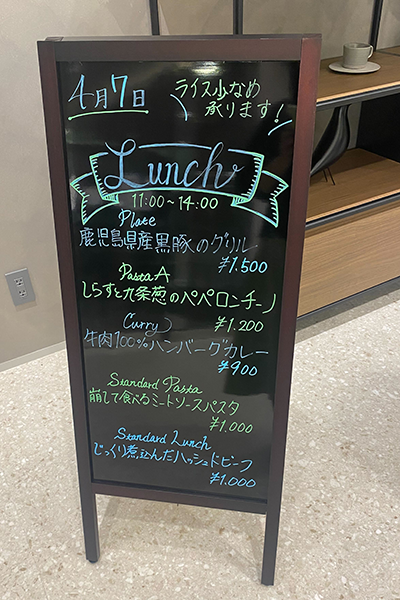 4月7日
ライス少なめ
承ります!
Lunch
11:00~14:00
Plate
鹿児島県産黒豚のグリル
¥1.500
Pasta A
しらすと九条葱のペペロンチーノ
¥1.200
Curry
牛肉100%ハンバーグカレー
¥900
Standard Pasta
崩して食べるミートソースパスタ
¥1.000
Standard Lunch
じっくり煮込んだハッシュドビーフ
¥1.000